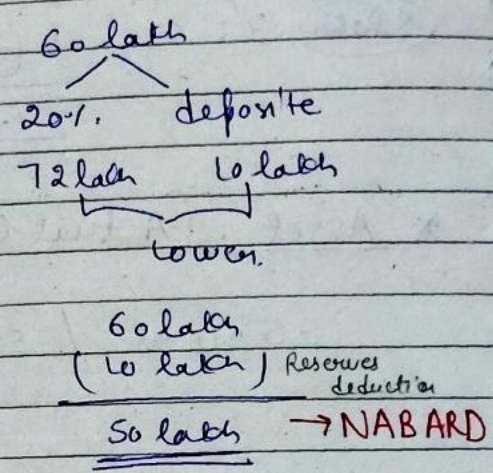 60 lakh
20%. deposite
72 lakh 10 lakh
Lower.
60 lakh
(10 lakh) Reserves
deduction
50 lakh → NABARD